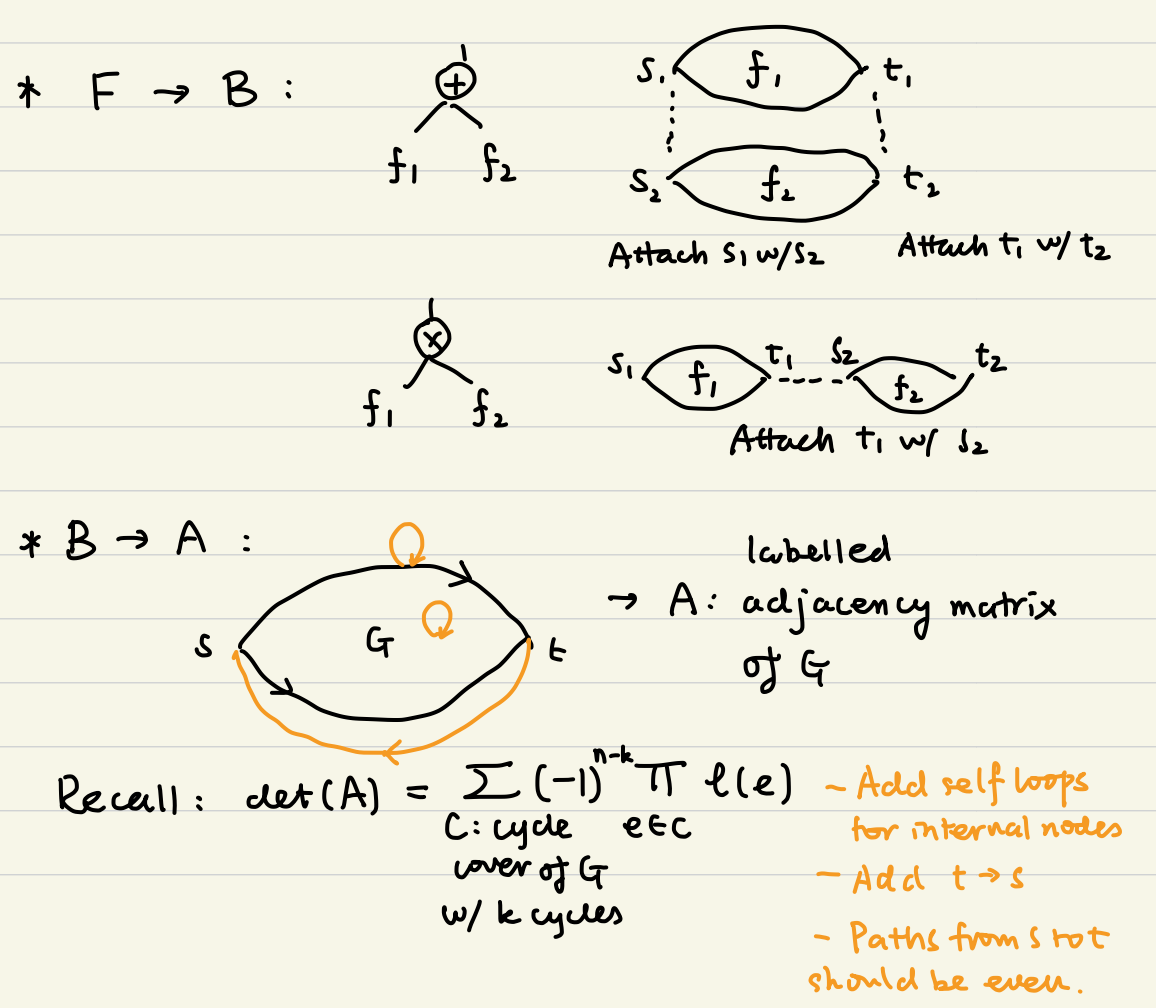 * F → B :
+
f₁ f₂
s₁ f₁ t₁
s₂ f₂ t₂
Attach s₁ w/s₂ Attach t₁ w/ t₂
x
f₁ f₂
s₁ f₁ t₁ s₂ f₂ t₂
Attach t₁ w/ s₂
* B → A :
s G t
→ A: labelled
adjacency matrix
of G
Recall: det(A) = ∑ (-1)ⁿ⁻ᵏ ∏ l(e)
C: cycle e∈C
cover of G
w/ k cycles
- Add self loops
for internal nodes
- Add t → s
- Paths from s to t
should be even.